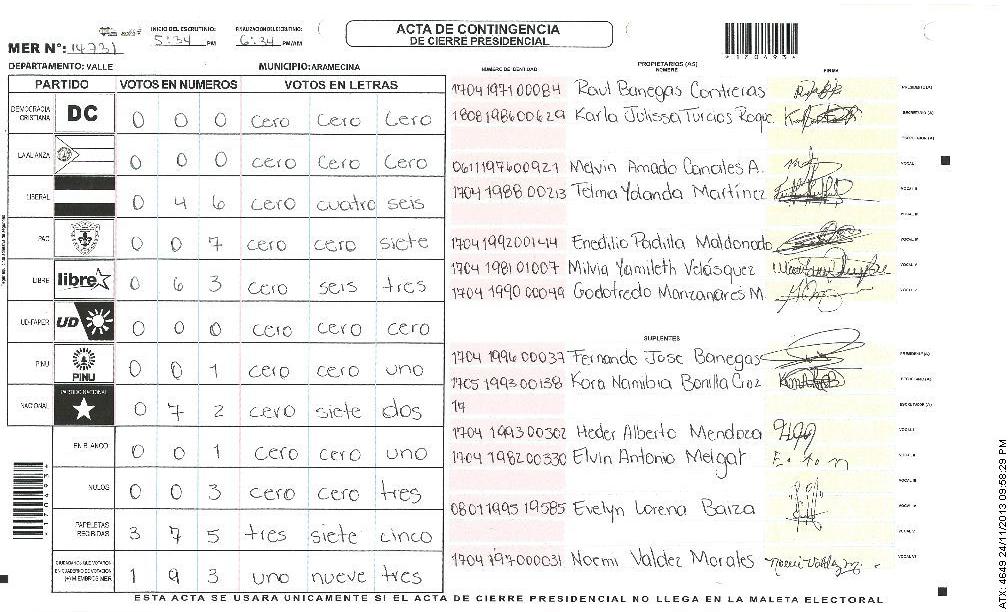 INICIO DEL ESCRUTINIO: 5:34 PM
FINALIZACION DE ESCRUTINIO: 6:34 PM/AM
ACTA DE CONTINGENCIA
DE CIERRE PRESIDENCIAL
*170493*
MER N°: 14731
DEPARTAMENTO: VALLE MUNICIPIO: ARAMECINA
PARTIDO VOTOS EN NUMEROS VOTOS EN LETRAS
DEMOCRACIA CRISTIANA DC 0 0 0 cero cero cero
LA ALIANZA 0 0 0 cero cero cero
LIBERAL 0 4 6 cero cuatro seis
PAC 0 0 7 cero cero siete
LIBRE libre 0 6 3 cero seis tres
UD-FAPER UD 0 0 0 cero cero cero
PINU PINU 0 0 1 cero cero uno
NACIONAL PARTIDO NACIONAL 0 7 2 cero siete dos
EN BLANCO 0 0 1 cero cero uno
NULOS 0 0 3 cero cero tres
PAPELETAS RECIBIDAS 3 7 5 tres siete cinco
CIUDADANOS QUE VOTARON EN CUADERNO DE VOTACION (+) MIEMBROS MER 1 9 3 uno nueve tres
PROPIETARIOS (AS)
NUMERO DE IDENTIDAD NOMBRE FIRMA
1704 1971 00084 Raul Banegas Contreras PRESIDENTE (A)
1808 1986 00629 Karla Julissa Turcios Roque SECRETARIO (A)
ESCRUTADOR (A)
0611197600921 Melvin Amado Canales A. VOCAL I
1704 1988 00213 Telma Yolanda Martínez VOCAL II
VOCAL III
1704199200144 Enedilio Padilla Maldonado VOCAL IV
1704 1981 01007 Milvia Yamileth Velásquez VOCAL V
1704 1990 00049 Godofredo Manzanares M.
SUPLENTES
1704 1996 00037 Fernando Jose Banegas PRESIDENTE (A)
1705 1993 00138 Kora Namibia Bonilla Cruz SECRETARIO (A)
17 ESCRUTADOR (A)
1704 1993 00302 Heder Alberto Mendoza VOCAL I
1704 1982 00330 Elvin Antonio Melgar VOCAL II
VOCAL III
0801 1995 19585 Evelyn Lorena Barza VOCAL IV
VOCAL V
1704 197000031 Noemi Valdez Morales VOCAL VI
ESTA ACTA SE USARA UNICAMENTE SI EL ACTA DE CIERRE PRESIDENCIAL NO LLEGA EN LA MALETA ELECTORAL
*170493*
ATX: 4649 24/11/2013 09:58:29 PM